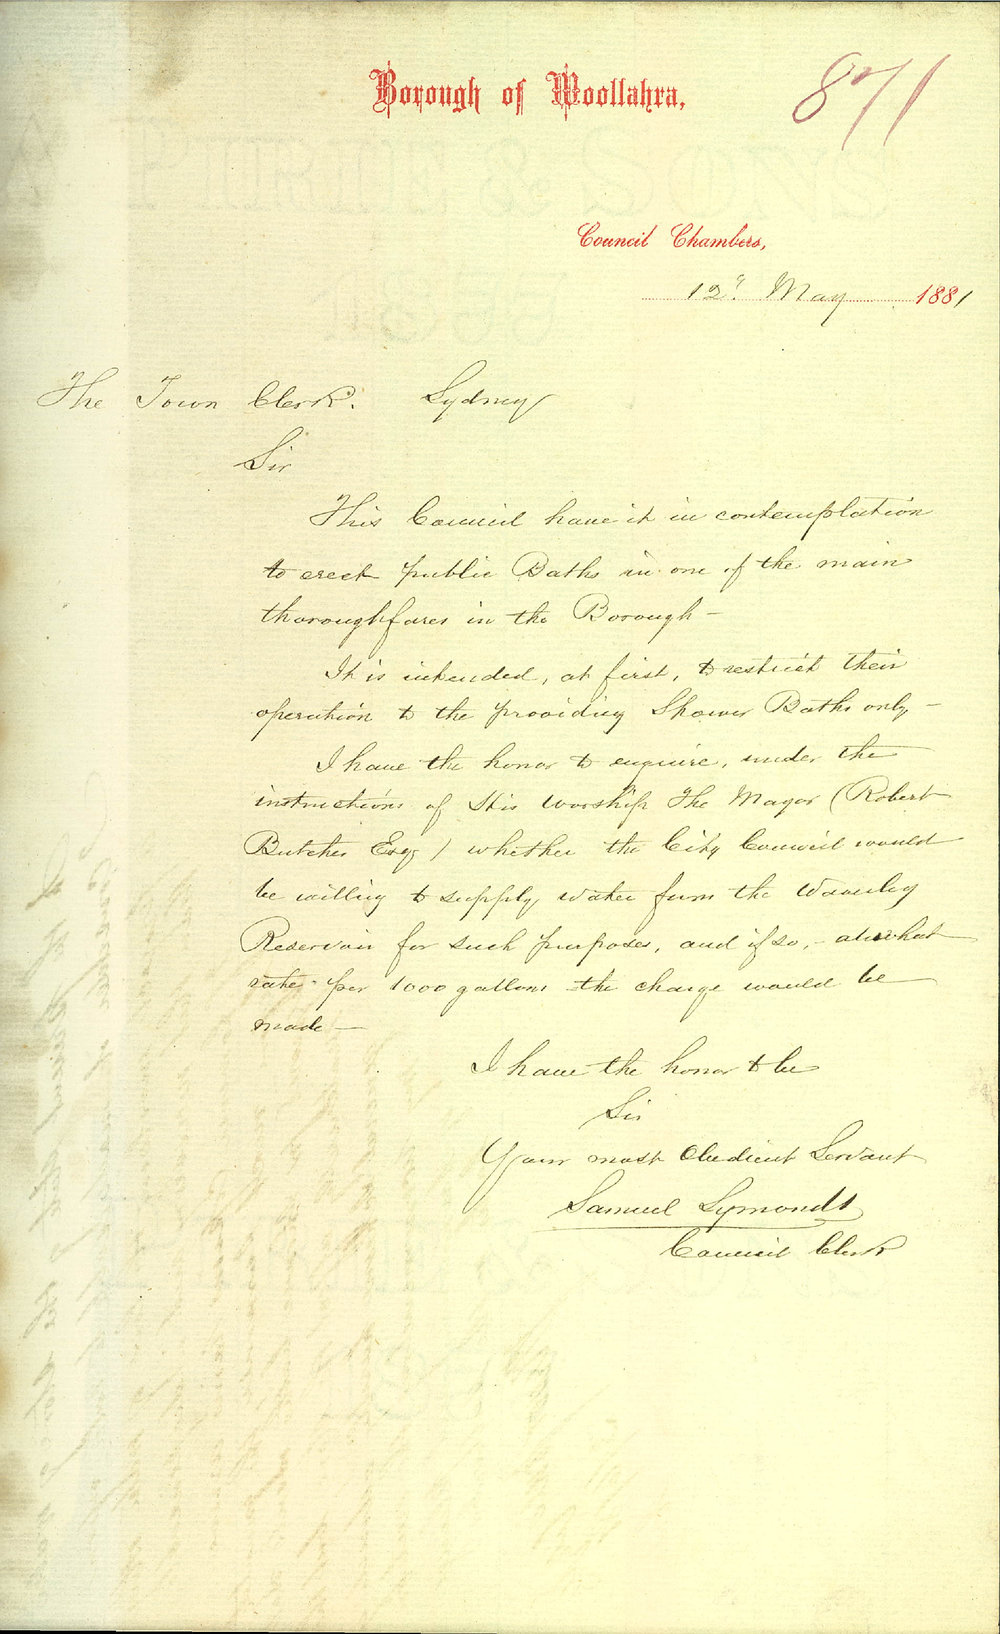 Borough of Woollahra,
871
Council Chambers,
12" May 1881
The Town Clerk. Sydney
Sir
This Council have it in contemplation
to erect public Baths in one of the main
thoroughfares in the Borough—
It is intended, at first, to restrict their
operation to the providing Shower Baths only—
I have the honor to enquire, under the
instructions of His Worship The Mayor (Robert
Butcher Esq) whether the City Council would
be willing to supply water from the Waverley
Reservoir for such purposes, and if so,- at what
rate per 1000 gallons the charge would be
made—
I have the honor to be
Sir
Your most Obedient Servant
Samuel Symonds
Council Clerk